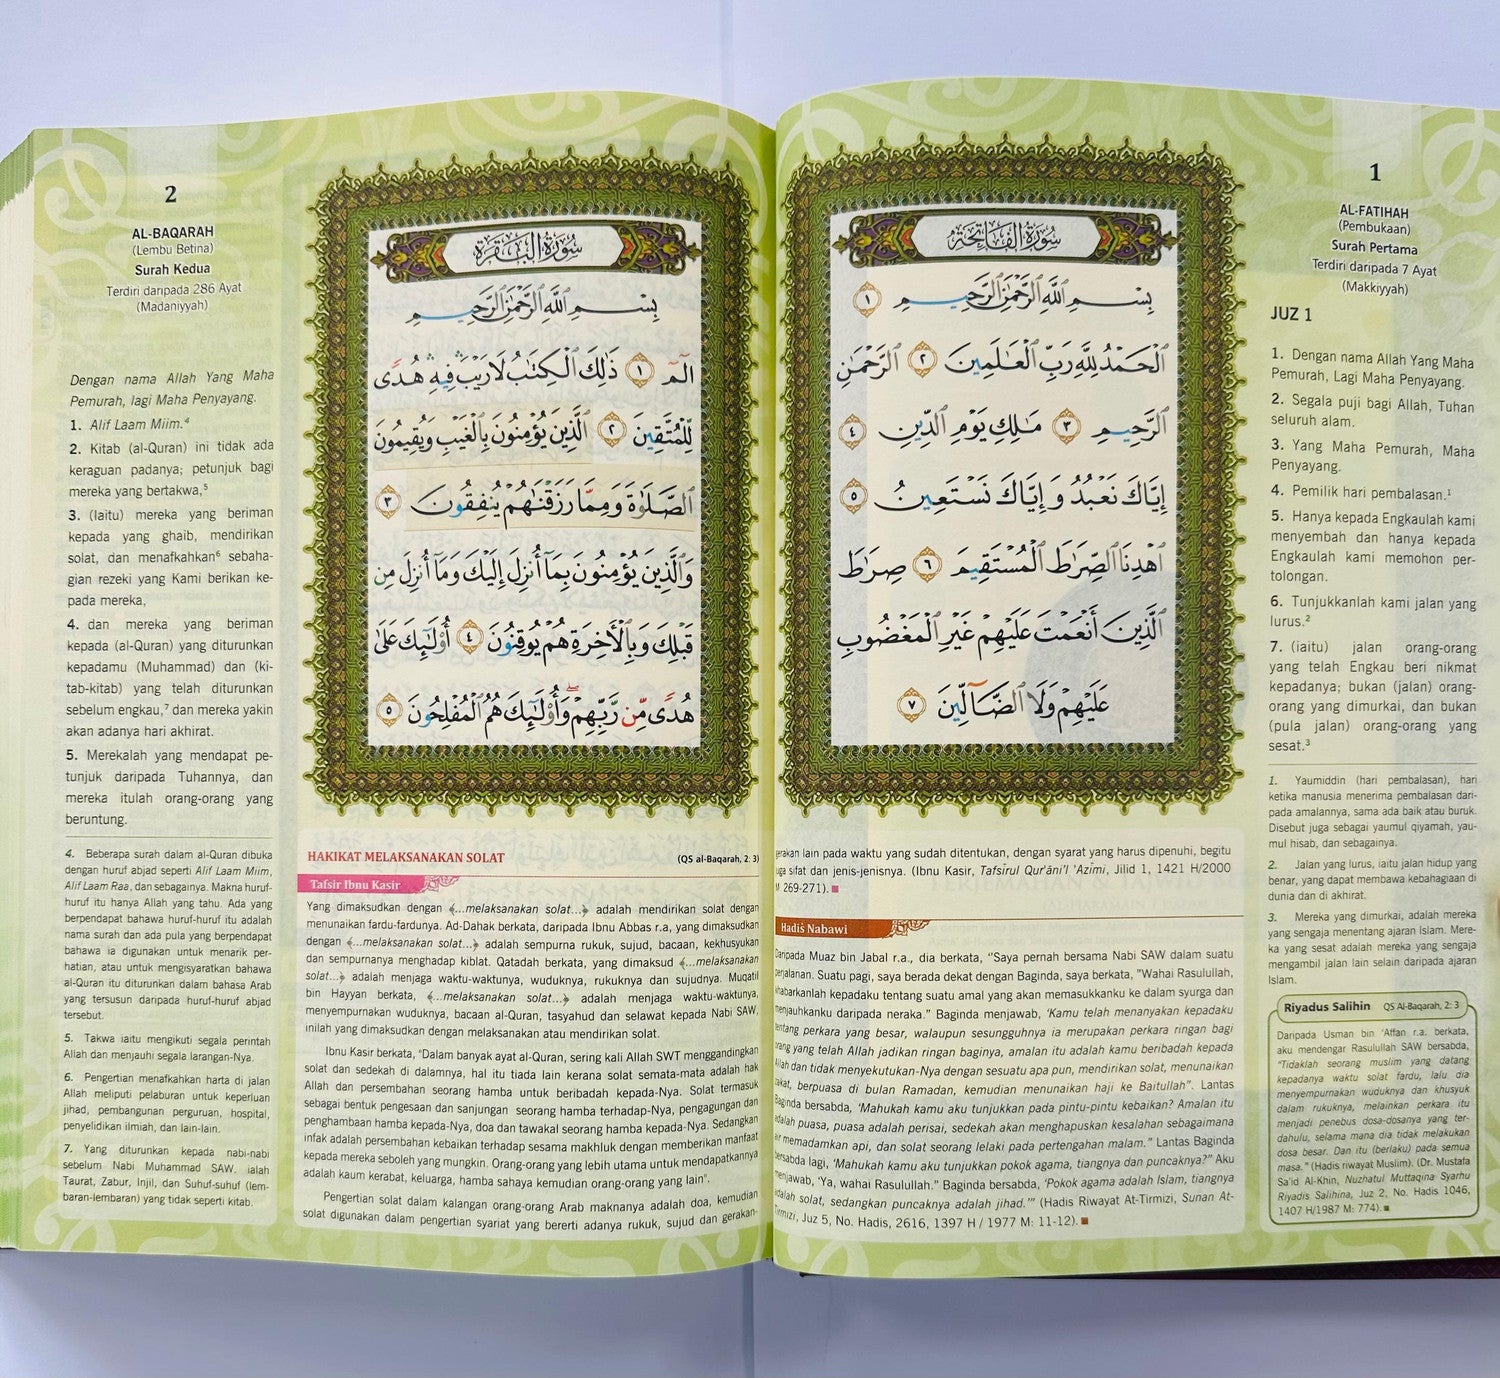 1
AL-FATIHAH
(Pembukaan)
Surah Pertama
Terdiri daripada 7 Ayat
(Makkiyyah)
JUZ 1
1. Dengan nama Allah Yang Maha
Pemurah, Lagi Maha Penyayang.
2. Segala puji bagi Allah, Tuhan
seluruh alam.
3. Yang Maha Pemurah, Maha
Penyayang.
4. Pemilik hari pembalasan.¹
5. Hanya kepada Engkaulah kami
menyembah dan hanya kepada
Engkaulah kami memohon per-
tolongan.
6. Tunjukkanlah kami jalan yang
lurus.²
7. (iaitu) jalan orang-orang
yang telah Engkau beri nikmat
kepadanya; bukan (jalan) orang-
orang yang dimurkai, dan bukan
(pula jalan) orang-orang yang
sesat.³
1. Yaumiddin (hari pembalasan), hari
ketika manusia menerima pembalasan dari-
pada amalannya, sama ada baik atau buruk.
Disebut juga sebagai yaumul qiyamah, yau-
mul hisab, dan sebagainya.
2. Jalan yang lurus, iaitu jalan hidup yang
benar, yang dapat membawa kebahagiaan di
dunia dan di akhirat.
3. Mereka yang dimurkai, adalah mereka
yang sengaja menentang ajaran Islam. Mere-
ka yang sesat adalah mereka yang sengaja
mengambil jalan lain selain daripada ajaran
Islam.
Riyadus Salihin QS Al-Baqarah, 2: 3
Daripada Usman bin 'Affan r.a. berkata,
aku mendengar Rasulullah SAW bersabda,
"Tidaklah seorang muslim yang datang
kepadanya waktu solat fardu, lalu dia
menyempurnakan wuduknya dan khusyuk
dalam rukuknya, melainkan perkara itu
menjadi penebus dosa-dosanya yang ter-
dahulu, selama mana dia tidak melakukan
dosa besar. Dan itu (berlaku) pada semua
masa." (Hadis riwayat Muslim). (Dr. Mustafa
Sa'id Al-Khin, Nuzhatul Muttaqina Syarhu
Riyadis Salihina, Juz 2, No. Hadis 1046,
1407 H/1987 M: 774).
سُورَةُ الفَاتِحَةِ
بِسْمِ ٱللَّهِ ٱلرَّحْمَٰنِ ٱلرَّحِيمِ ١
ٱلْحَمْدُ لِلَّهِ رَبِّ ٱلْعَٰلَمِينَ ٢ ٱلرَّحْمَٰنِ
ٱلرَّحِيمِ ٣ مَٰلِكِ يَوْمِ ٱلدِّينِ ٤
إِيَّاكَ نَعْبُدُ وَإِيَّاكَ نَسْتَعِينُ ٥
ٱهْدِنَا ٱلصِّرَٰطَ ٱلْمُسْتَقِيمَ ٦ صِرَٰطَ
ٱلَّذِينَ أَنْعَمْتَ عَلَيْهِمْ غَيْرِ ٱلْمَغْضُوبِ
عَلَيْهِمْ وَلَا ٱلضَّآلِّينَ ٧
gerakan lain pada waktu yang sudah ditentukan, dengan syarat yang harus dipenuhi, begitu
juga sifat dan jenis-jenisnya. (Ibnu Kasir, Tafsīrul Qur'āni'l 'Azīmi, Jilid 1, 1421 H/2000
M 269-271).
Hadis Nabawi
Daripada Muaz bin Jabal r.a., dia berkata, "Saya pernah bersama Nabi SAW dalam suatu
perjalanan. Suatu pagi, saya berada dekat dengan Baginda, saya berkata, "Wahai Rasulullah,
khabarkanlah kepadaku tentang suatu amal yang akan memasukkanku ke dalam syurga dan
menjauhkanku daripada neraka." Baginda menjawab, 'Kamu telah menanyakan kepadaku
tentang perkara yang besar, walaupun sesungguhnya ia merupakan perkara ringan bagi
orang yang telah Allah jadikan ringan baginya, amalan itu adalah kamu beribadah kepada
Allah dan tidak menyekutukan-Nya dengan sesuatu apa pun, mendirikan solat, menunaikan
zakat, berpuasa di bulan Ramadan, kemudian menunaikan haji ke Baitullah". Lantas
Baginda bersabda, 'Mahukah kamu aku tunjukkan pada pintu-pintu kebaikan? Amalan itu
adalah puasa, puasa adalah perisai, sedekah akan menghapuskan kesalahan sebagaimana
air memadamkan api, dan solat seorang lelaki pada pertengahan malam." Lantas Baginda
bersabda lagi, 'Mahukah kamu aku tunjukkan pokok agama, tiangnya dan puncaknya?" Aku
menjawab, 'Ya, wahai Rasulullah." Baginda bersabda, 'Pokok agama adalah Islam, tiangnya
adalah solat, sedangkan puncaknya adalah jihad.'" (Hadis Riwayat At-Tirmizi, Sunan At-
Tirmizi, Juz 5, No. Hadis, 2616, 1397 H / 1977 M: 11-12).
2
AL-BAQARAH
(Lembu Betina)
Surah Kedua
Terdiri daripada 286 Ayat
(Madaniyyah)
Dengan nama Allah Yang Maha
Pemurah, lagi Maha Penyayang.
1. Alif Laam Miim.⁴
2. Kitab (al-Quran) ini tidak ada
keraguan padanya; petunjuk bagi
mereka yang bertakwa,⁵
3. (Iaitu) mereka yang beriman
kepada yang ghaib, mendirikan
solat, dan menafkahkan⁶ sebaha-
gian rezeki yang Kami berikan ke-
pada mereka,
4. dan mereka yang beriman
kepada (al-Quran) yang diturunkan
kepadamu (Muhammad) dan (ki-
tab-kitab) yang telah diturunkan
sebelum engkau,⁷ dan mereka yakin
akan adanya hari akhirat.
5. Merekalah yang mendapat pe-
tunjuk daripada Tuhannya, dan
mereka itulah orang-orang yang
beruntung.
4. Beberapa surah dalam al-Quran dibuka
dengan huruf abjad seperti Alif Laam Miim,
Alif Laam Raa, dan sebagainya. Makna huruf-
huruf itu hanya Allah yang tahu. Ada yang
berpendapat bahawa huruf-huruf itu adalah
nama surah dan ada pula yang berpendapat
bahawa ia digunakan untuk menarik per-
hatian, atau untuk mengisyaratkan bahawa
al-Quran itu diturunkan dalam bahasa Arab
yang tersusun daripada huruf-huruf abjad
tersebut.
5. Takwa iaitu mengikuti segala perintah
Allah dan menjauhi segala larangan-Nya.
6. Pengertian menafkahkan harta di jalan
Allah meliputi pelaburan untuk keperluan
jihad, pembangunan perguruan, hospital,
penyelidikan ilmiah, dan lain-lain.
7. Yang diturunkan kepada nabi-nabi
sebelum Nabi Muhammad SAW. ialah
Taurat, Zabur, Injil, dan Suhuf-suhuf (lem-
baran-lembaran) yang tidak seperti kitab.
سُورَةُ البَقَرَةِ
بِسْمِ ٱللَّهِ ٱلرَّحْمَٰنِ ٱلرَّحِيمِ
الٓمٓ ١ ذَٰلِكَ ٱلْكِتَٰبُ لَا رَيْبَ ۛ فِيهِ ۛ هُدًى
لِّلْمُتَّقِينَ ٢ ٱلَّذِينَ يُؤْمِنُونَ بِٱلْغَيْبِ وَيُقِيمُونَ
ٱلصَّلَوٰةَ وَمِمَّا رَزَقْنَٰهُمْ يُنفِقُونَ ٣
وَٱلَّذِينَ يُؤْمِنُونَ بِمَآ أُنزِلَ إِلَيْكَ وَمَآ أُنزِلَ مِن
قَبْلِكَ وَبِٱلْءَاخِرَةِ هُمْ يُوقِنُونَ ٤ أُو۟لَٰٓئِكَ عَلَىٰ
هُدًى مِّن رَّبِّهِمْ ۖ وَأُو۟لَٰٓئِكَ هُمُ ٱلْمُفْلِحُونَ ٥
HAKIKAT MELAKSANAKAN SOLAT (QS al-Baqarah, 2: 3)
Tafsir Ibnu Kasir
Yang dimaksudkan dengan ﴾...melaksanakan solat...﴿ adalah mendirikan solat dengan
menunaikan fardu-fardunya. Ad-Dahak berkata, daripada Ibnu Abbas r.a, yang dimaksudkan
dengan ﴾...melaksanakan solat...﴿ adalah sempurna rukuk, sujud, bacaan, kekhusyukan
dan sempurnanya menghadap kiblat. Qatadah berkata, yang dimaksud ﴾...melaksanakan
solat...﴿ adalah menjaga waktu-waktunya, wuduknya, rukuknya dan sujudnya. Muqatil
bin Hayyan berkata, ﴾...melaksanakan solat...﴿ adalah menjaga waktu-waktunya,
menyempurnakan wuduknya, bacaan al-Quran, tasyahud dan selawat kepada Nabi SAW,
inilah yang dimaksudkan dengan melaksanakan atau mendirikan solat.
Ibnu Kasir berkata, "Dalam banyak ayat al-Quran, sering kali Allah SWT menggandingkan
solat dan sedekah di dalamnya, hal itu tiada lain kerana solat semata-mata adalah hak
Allah dan persembahan seorang hamba untuk beribadah kepada-Nya. Solat termasuk
sebagai bentuk pengesaan dan sanjungan seorang hamba terhadap-Nya, pengagungan dan
penghambaan hamba kepada-Nya, doa dan tawakal seorang hamba kepada-Nya. Sedangkan
infak adalah persembahan kebaikan terhadap sesama makhluk dengan memberikan manfaat
kepada mereka seboleh yang mungkin. Orang-orang yang lebih utama untuk mendapatkannya
adalah kaum kerabat, keluarga, hamba sahaya kemudian orang-orang yang lain".
Pengertian solat dalam kalangan orang-orang Arab maknanya adalah doa, kemudian
solat digunakan dalam pengertian syariat yang bererti adanya rukuk, sujud dan gerakan-